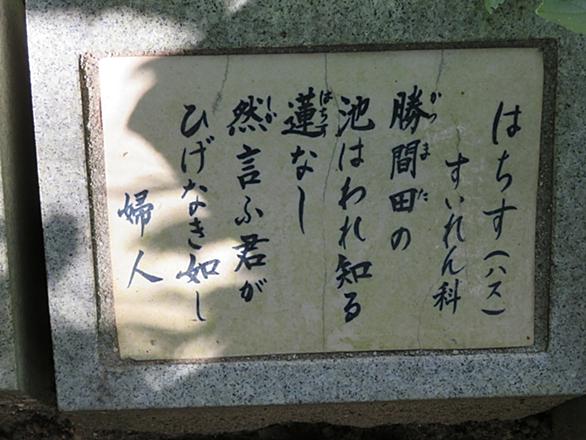 はちす(ハス)
すいれん科
勝間田の
池はわれ知る
蓮なし
然言ふ君が
ひげなき如し
婦人